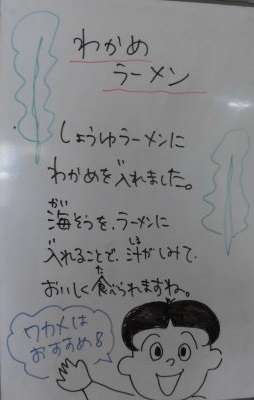 わかめ
ラーメン
しょうゆラーメンに
わかめを入れました。
海そうを、ラーメンに
入れることで、汁がしみて
おいしく食べられますね。
ワカメは
おすすめ